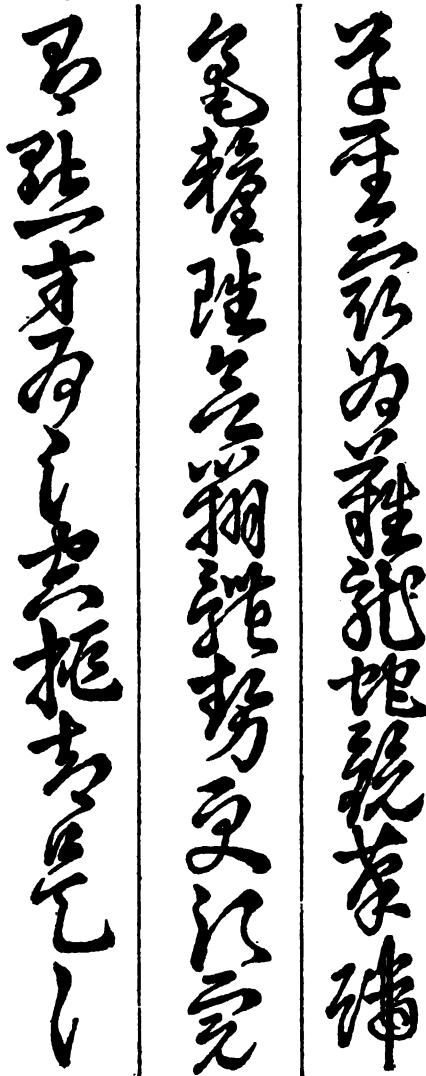 草聖最為難龍蛇競筆端
毫釐雖欲辨體勢更須完
有點方為水空挑却是言